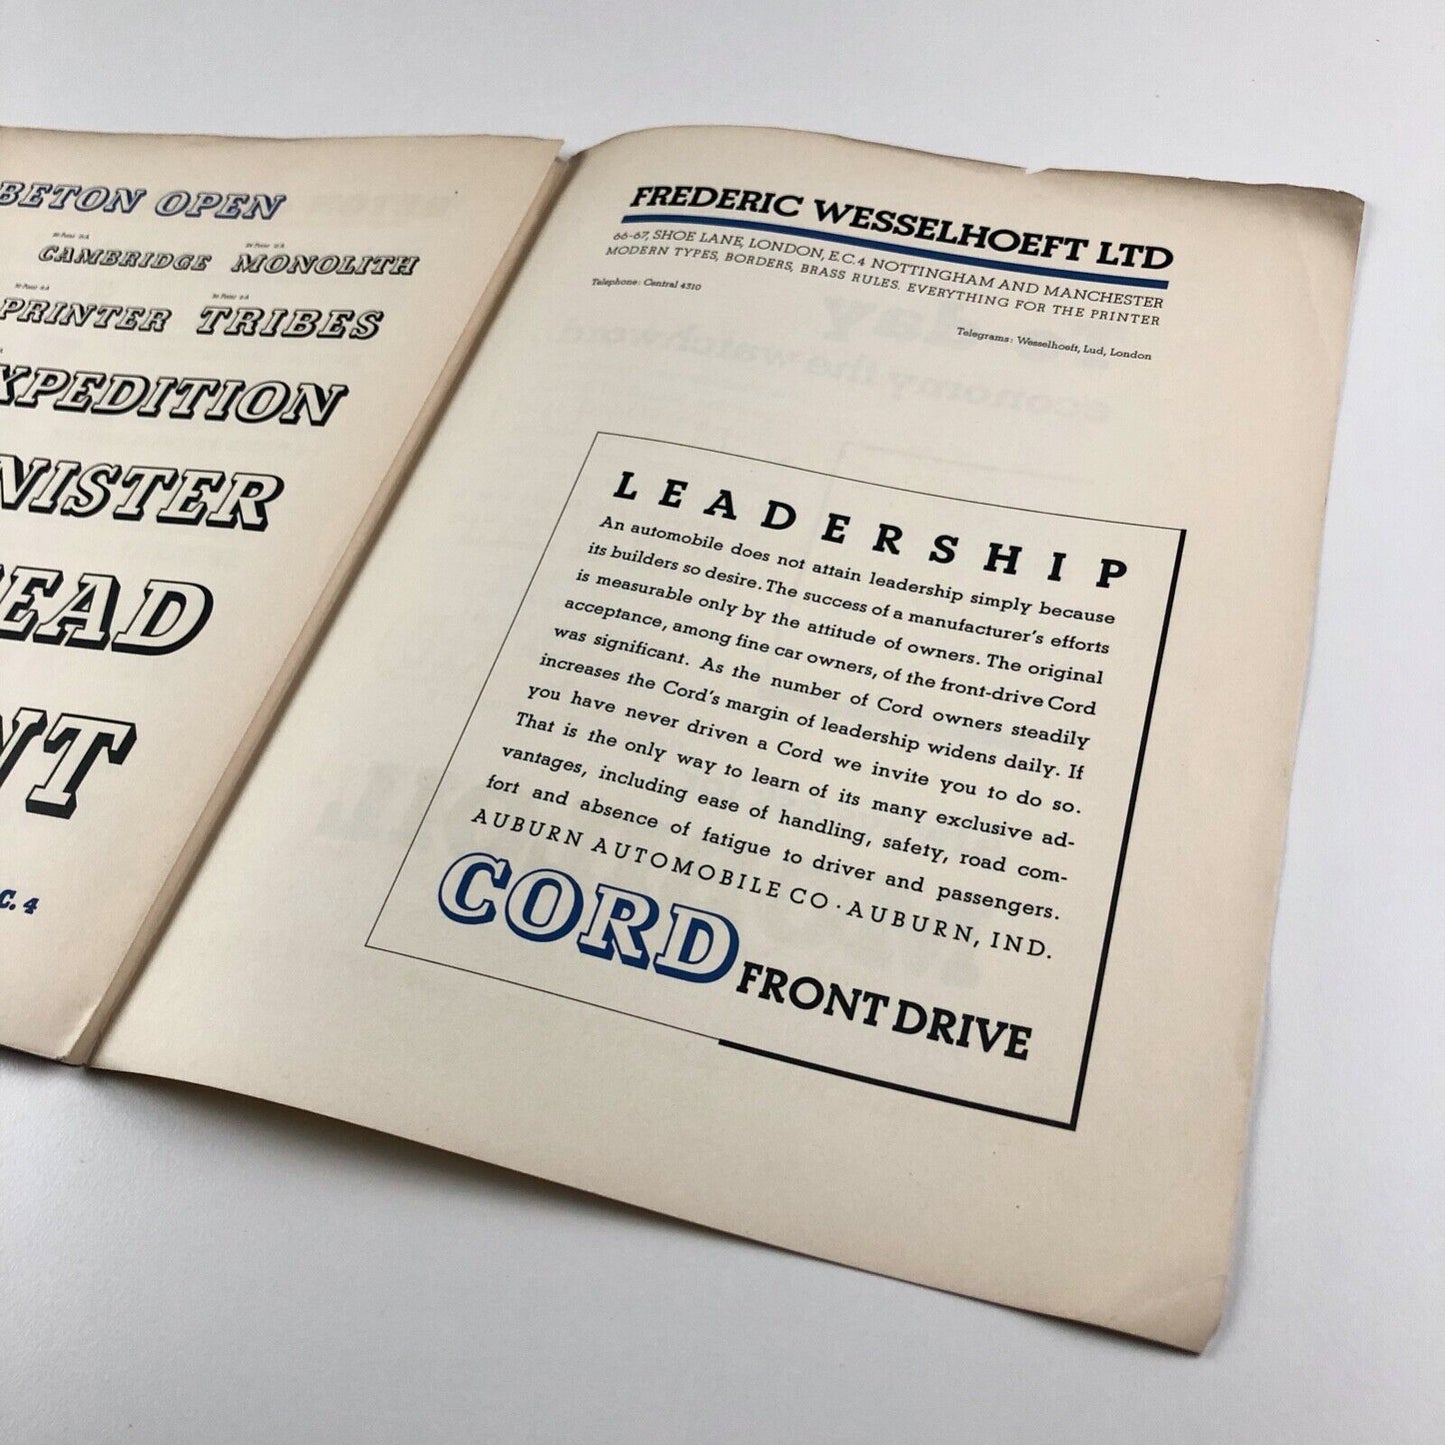 BETON OPEN
CAMBRIDGE MONOLITH
PRINTER TRIBES
XPEDITION
NISTER
EAD
NT
C. 4
FREDERIC WESSELHOEFT LTD
66-67, SHOE LANE, LONDON, E.C. 4 NOTTINGHAM AND MANCHESTER
MODERN TYPES, BORDERS, BRASS RULES. EVERYTHING FOR THE PRINTER
Telephone: Central 4310
Telegrams: Wesselhoeft, Lud, London
LEADERSHIP
An automobile does not attain leadership simply because
its builders so desire. The success of a manufacturer's efforts
is measurable only by the attitude of owners. The original
acceptance, among fine car owners, of the front-drive Cord
was significant. As the number of Cord owners steadily
increases the Cord's margin of leadership widens daily. If
you have never driven a Cord we invite you to do so.
That is the only way to learn of its many exclusive ad-
vantages, including ease of handling, safety, road com-
fort and absence of fatigue to driver and passengers.
AUBURN AUTOMOBILE CO · AUBURN, IND.
CORD FRONT DRIVE